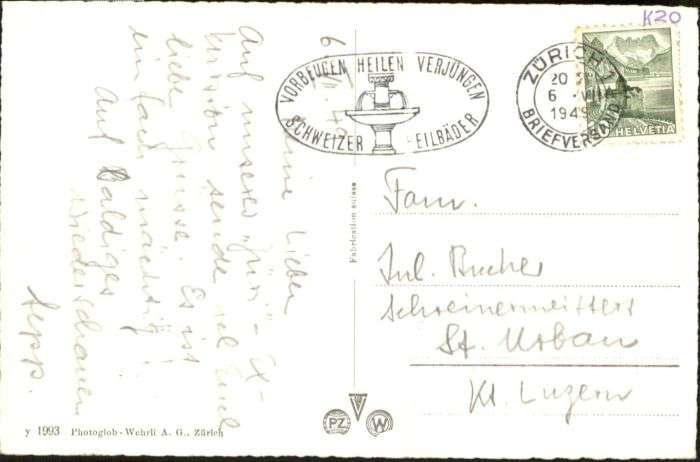 K20
VORBEUGEN HEILEN VERJÜNGEN
SCHWEIZER HEILBÄDER
ZÜRICH 1
20
6. VII
1949
BRIEFVERSAND
HELVETIA
6. VII. 49
Meine Lieben
Auf unserer „Züri"-Ex-
kursion sende ich Euch
liebe Grüsse. Es ist
einfach mächtig!
Auf baldiges
Wiederschauen
Sepp.
Fabrication suisse
Fam.
Jul. Bucher
Schreinermeisters
St. Urban
Kt. Luzern
y 1993 Photoglob-Wehrli A. G., Zürich
PZ
W